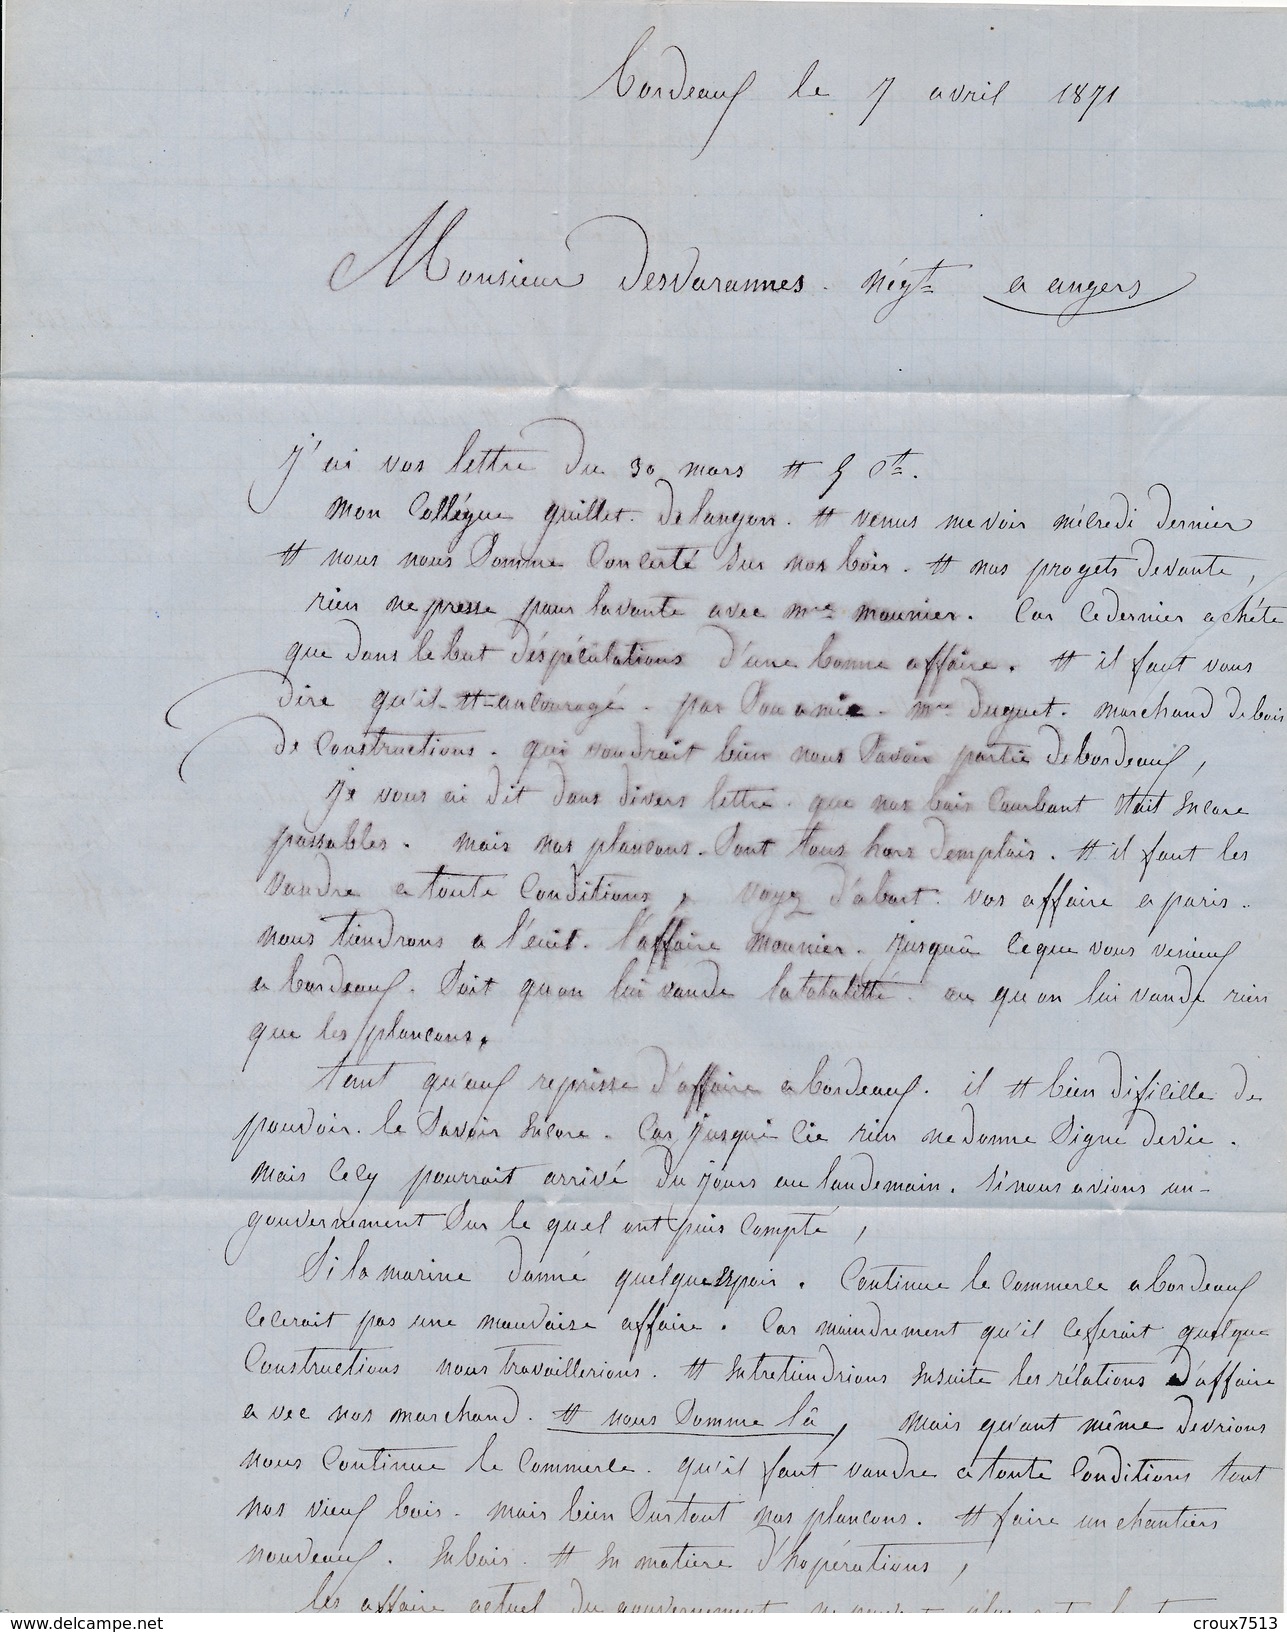 Bordeaux le 7 avril 1871
Monsieur Desvarannes. négt a angers
J'ai vos lettre du 30 mars et 5 ct.
mon Collégue guillet. de langon. et venus me voir mécredi dernier
et nous nous somme Concerté sur nos bois. et nos progets de vante,
rien ne presse pour la vante avec mr mounier. Car ce dernier achéte
que dans le but d'éspéculations d'une bonne affaire. et il faut vous
dire qu'il et ancouragé. par son amie. mr Duguet. marchand de bois
de Constructions. qui voudrait bien nous savoir partie de bordeaux,
Je vous ai dit dans divers lettre. que nos bois Courbant était encore
passables. mais nos plancons. sont tous hors demplois. et il faut les
vandre a toute Conditions, voyez d'abort. vos affaire a paris.
nous tiendrons a l'euil. l'affaire mounier. jusqu'à ceque vous venieux
a bordeaux. soit quon lui vande la totalitté. ou qu'on lui vande rien
que les plancons.
tant qu'aux reprisse d'affaire a bordeaux. il et bien dificille de
pouvoir. le savoir encore. Car jusqui cie rien ne donne signe de vie.
mais cecy pourrait arrivé du jours au landemain. si nous avions un
gouvernement sur le quel ont puis compté,
Si la marine donné quelque espoir. Continue le Commerce a bordeaux
ce cerait pas une mauvaise affaire. Car moindrement qu'il ce ferait quelque
Constructions nous travaillerions. et entretiendrions ensuite les rélations d'affaire
avec nos marchand. et nous somme là, mais qu'ant même devrions
nous Continue le Commerce. qu'il faut vandre a toute Conditions tout
nos vieux bois. mais bien surtout nos plancons. et faire un chantiers
nouveaux. en bois. et en matiere d'hopérations,
les affaire actuel du gouvernement
www.delcampe.net
croux7513